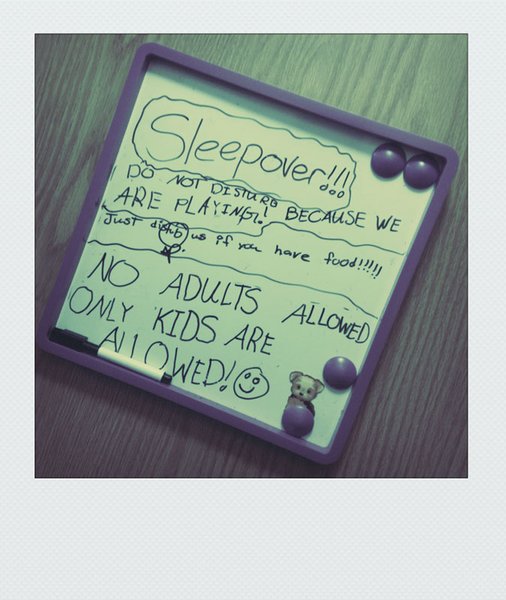 Sleepover!!!
DO NOT DISTURB BECAUSE WE
ARE PLAYING!!
Just distub us if you have food!!!!!
NO ADULTS ALLOWED
ONLY KIDS ARE
ALLOWED!